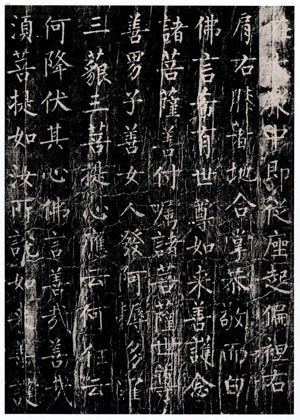 眾中即從座起偏袒右
肩右膝著地合掌恭敬而白
佛言希有世尊如來善護念
諸菩薩善付囑諸菩薩世尊
善男子善女人發阿耨多羅
三藐三菩提心應云何住云
何降伏其心佛言善哉善哉
須菩提如汝所說如善護